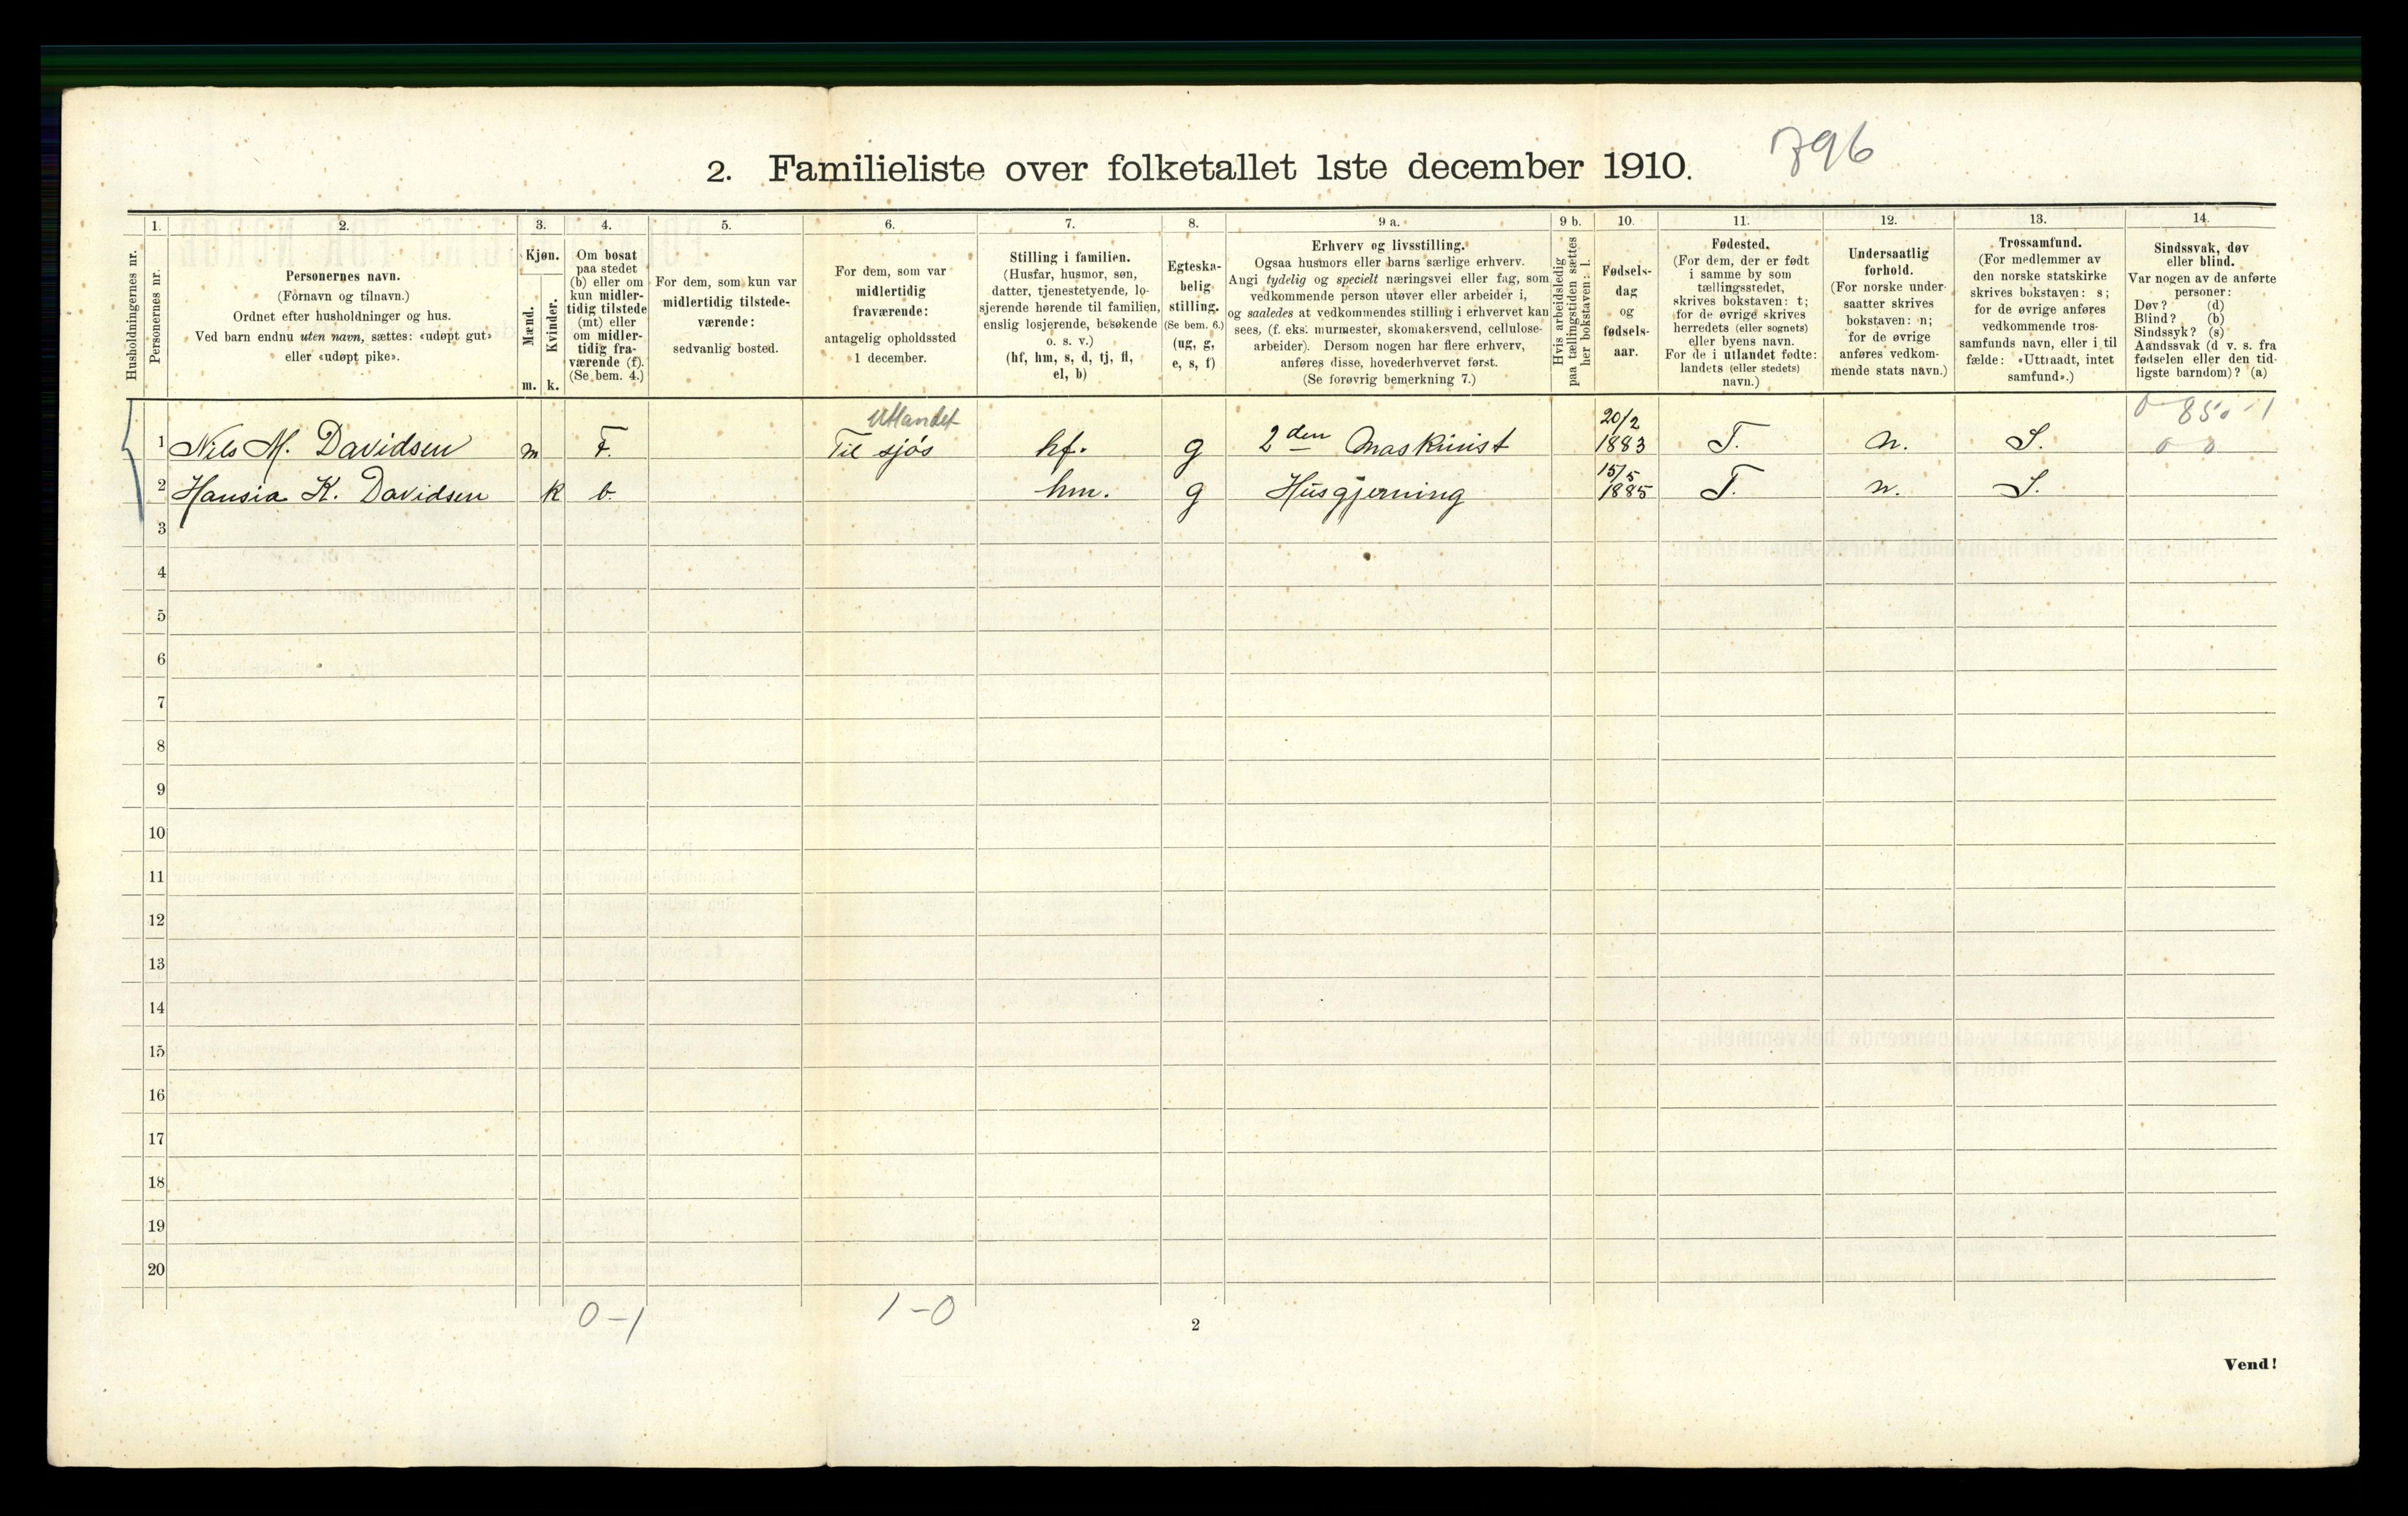 796
2. Familieliste over folketallet 1ste december 1910.
Husholdningernes nr.
1.
Personernes nr.
2.
Personernes navn.
(Fornavn og tilnavn.)
Ordnet efter husholdninger og hus.
Ved barn endnu uten navn, sættes: «udøpt gut»
eller «udøpt pike».
3.
Kjøn.
Mænd.
Kvinder.
m. k.
4.
Om bosat
paa stedet
(b) eller om
kun midler-
tidig tilstede
(mt) eller
om midler-
tidig fra-
værende (f).
(Se bem. 4.)
5.
For dem, som kun var
midlertidig tilstede-
værende:
sedvanlig bosted.
6.
For dem, som var
midlertidig
fraværende:
antagelig opholdssted
1 december.
7.
Stilling i familien.
(Husfar, husmor, søn,
datter, tjenestetyende, lo-
sjerende hørende til familien,
enslig losjerende, besøkende
o. s. v.)
(hf, hm, s, d, tj, fl,
el, b)
8.
Egteska-
belig
stilling.
(Se bem. 6.)
(ug, g,
e, s, f)
9 a.
Erhverv og livsstilling.
Ogsaa husmors eller barns særlige erhverv.
Angi tydelig og specielt næringsvei eller fag, som
vedkommende person utøver eller arbeider i,
og saaledes at vedkommendes stilling i erhvervet kan
sees, (f. eks. murmester, skomakersvend, cellulose-
arbeider). Dersom nogen har flere erhverv,
anføres disse, hovederhvervet først.
(Se forøvrig bemerkning 7.)
9 b.
Hvis arbeidsledig
paa tællingstiden sættes
her bokstaven: l.
10.
Fødsels-
dag
og
fødsels-
aar.
11.
Fødested.
(For dem, der er født
i samme by som
tællingsstedet,
skrives bokstaven: t;
for de øvrige skrives
herredets (eller sognets)
eller byens navn.
For de i utlandet fødte:
landets (eller stedets)
navn.)
12.
Undersaatlig
forhold.
(For norske under-
saatter skrives
bokstaven: n;
for de øvrige
anføres vedkom-
mende stats navn.)
13.
Trossamfund.
(For medlemmer av
den norske statskirke
skrives bokstaven: s;
for de øvrige anføres
vedkommende tros-
samfunds navn, eller i til-
fælde: «Uttraadt, intet
samfund».)
14.
Sindssvak, døv
eller blind.
Var nogen av de anførte
personer:
Døv? (d)
Blind? (b)
Sindssyk? (s)
Aandssvak (d. v. s. fra
fødselen eller den tid-
ligste barndom)? (a)
Utlandet 20/2 0 850-1
1 Nils M. Davidsen m F. Til sjøs hf. g 2den Maskinist 1883 T. n. S. 0 0
15/5
2 Hansia K. Davidsen k b. hm. g Husgjerning 1885 T. n. S.
3
4
5
6
7
8
9
10
11
12
13
14
15
16
17
18
19
20
0-1 1-0
2
Vend!